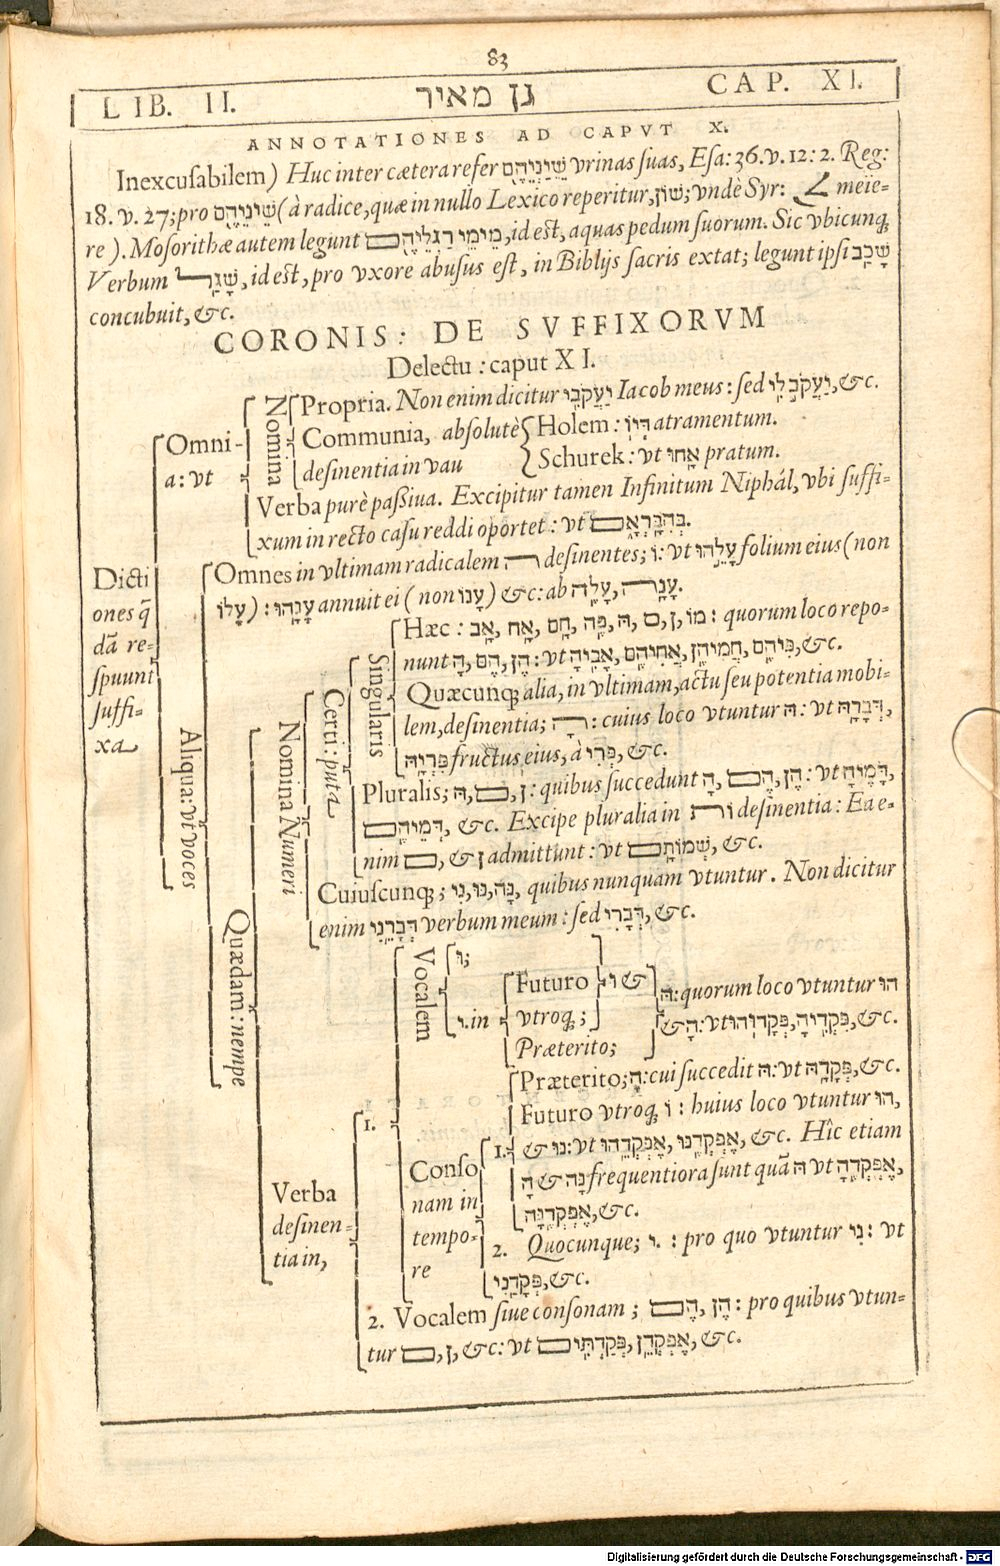 83
LIB. II. גן מאיר CAP. XI.
ANNOTATIONES AD CAPVT X.
Inexcusabilem) Huc inter cætera refer שֵׁינֵיהֶם vrinas suas, Esa: 36. v. 12: 2. Reg:
18. v. 27; pro שֵׁינֵיהֶם (à radice, quæ in nullo Lexico reperitur, שׁוּן; vndè Syr: meie-
re). Mosorithæ autem legunt מֵימֵי רַגְלֵיהֶם, id est, aquas pedum suorum. Sic vbicunq;
Verbum שָׁגַל, id est, pro vxore abusus est, in Biblijs sacris extat; legunt ipsi שָׁכַב
concubuit, &c.
CORONIS: DE SVFFIXORVM
Delectu: caput XI.
Dicti
ones q̃
dã re-
spuunt
suffi-
xa
Omni-
a: vt
Nomina
Propria. Non enim dicitur יַעֲקֹבִי Iacob meus: sed יַעֲקֹב לִי, &c.
Communia, absolutè
desinentia in vau
Holem: דְּיוֹ atramentum.
Schurek: vt אָחוּ pratum.
Verba purè passiua. Excipitur tamen Infinitum Niphál, vbi suffi-
xum in recto casu reddi oportet: vt בְּהִבָּרְאָם.
Aliqua: vt voces
Omnes in vltimam radicalem ה desinentes; וֹ: vt עָלֵהוּ folium eius (non
עָלוֹ): עָנָהוּ annuit ei (non עָנוֹ) &c: ab עָלֶה, עָנָה.
Quædam: nempe
Nomina Numeri
Certi: puta
Singularis
Hæc: אָב, אָח, חָם, פֶּה, הּ, ם, ן, מוֹ: quorum loco repo-
nunt הָ, הֶם, הֶן: vt אָבִיהָ, אֲחִיהֶם, חֲמִיהֶן, פִּיהֶם, &c.
Quæcunq; alia, in vltimam, actu seu potentia mobi-
lem, desinentia; הָ: cuius loco vtuntur הּ: vt דְּבָרָהּ,
פִּרְיָהּ fructus eius, à פְּרִי, &c.
Pluralis; הּ, ם, ן: quibus succedunt הָ, הֶם, הֶן: vt דָּמֶיהָ,
דְּמֵיהֶם, &c. Excipe pluralia in וֹת desinentia: Ea e-
nim ם, & ן admittunt: vt שְׁמוֹתָם, &c.
Cuiuscunq; נִי, נוּ, נָּה, quibus nunquam vtuntur. Non dicitur
enim דְּבָרֵנִי verbum meum: sed דְּבָרִי, &c.
Verba
desinen-
tia in,
1.
Vocalem
וּ;
י. in
Futuro
vtroq;;
Præterito;
וֹ &
הּ: quorum loco vtuntur הוּ
& הָ: vt פְּקָדוּהוּ, פִּקְדִיהָ, &c.
Conso
nam in
tempo-
re
1.
Præterito; הָ: cui succedit הּ: vt פְּקָדָהּ, &c.
Futuro vtroq; וֹ: huius loco vtuntur הוּ,
& נּוּ: vt אֶפְקְדֵהוּ, אֶפְקְדֶנּוּ, &c. Hîc etiam
הָ & נָּה frequentiora sunt quã הּ vt אֶפְקְדֶהָ,
אֶפְקְדֶנָּה, &c.
2. Quocunque; י.: pro quo vtuntur נִי: vt
פְּקָדַנִי, &c.
2. Vocalem siue consonam; הֶם, הֶן: pro quibus vtun-
tur ם, ן, &c: vt פְּקַדְתִּים, אֶפְקְדֵן, &c.
Digitalisierung gefördert durch die Deutsche Forschungsgemeinschaft - DFG